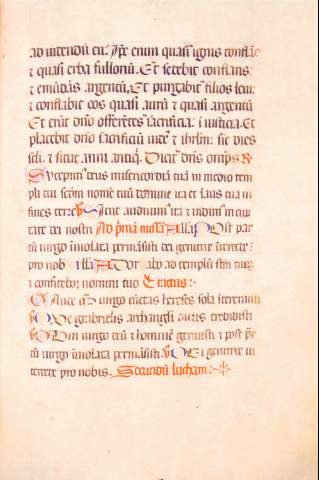 ad intendū eū. Ip̄e enim quasi ignis conflās
⁊ quasi erba fullonū. Et sedebit conflans
⁊ emūdās argentū. Et purgabit filios leui
⁊ conflabit eos quasi aurū ⁊ quasi argentū
Et erūt dn̄o offerētes sacrificia i iusticia. Et
placebit dn̄o sacrificiū iude ⁊ ihrlm̄ sic dies
scl̄i ⁊ sicut anni antiq̄. Dicit dn̄s om̄ps R
Suscepim̄ deus misericordiā tuā in medio tem
pli tui scd̄m nomē tuū domine ita et laus tua in
fines terre V Sicut audiuim̄ ita ⁊ uidim̄ in ciui
tate dei nostri Ad p̄mā missā Alla V Post par
tū uirgo inuiolata permāsisti dei genitrix intercede
pro nob Alla Adorabo ad templū sm̄ tuū
⁊ confitebor nomini tuo Tractus
Gaude Mª uirgo cūctas hereses sola interemisti
V Que gabrielis archangeli dictis credidisti
V Dum uirgo deū ⁊ hominē genuisti ⁊ post p̄
tū uirgo inuiolata permāsisti V Dei genitrix in
tercede pro nobis. Secundū lucham